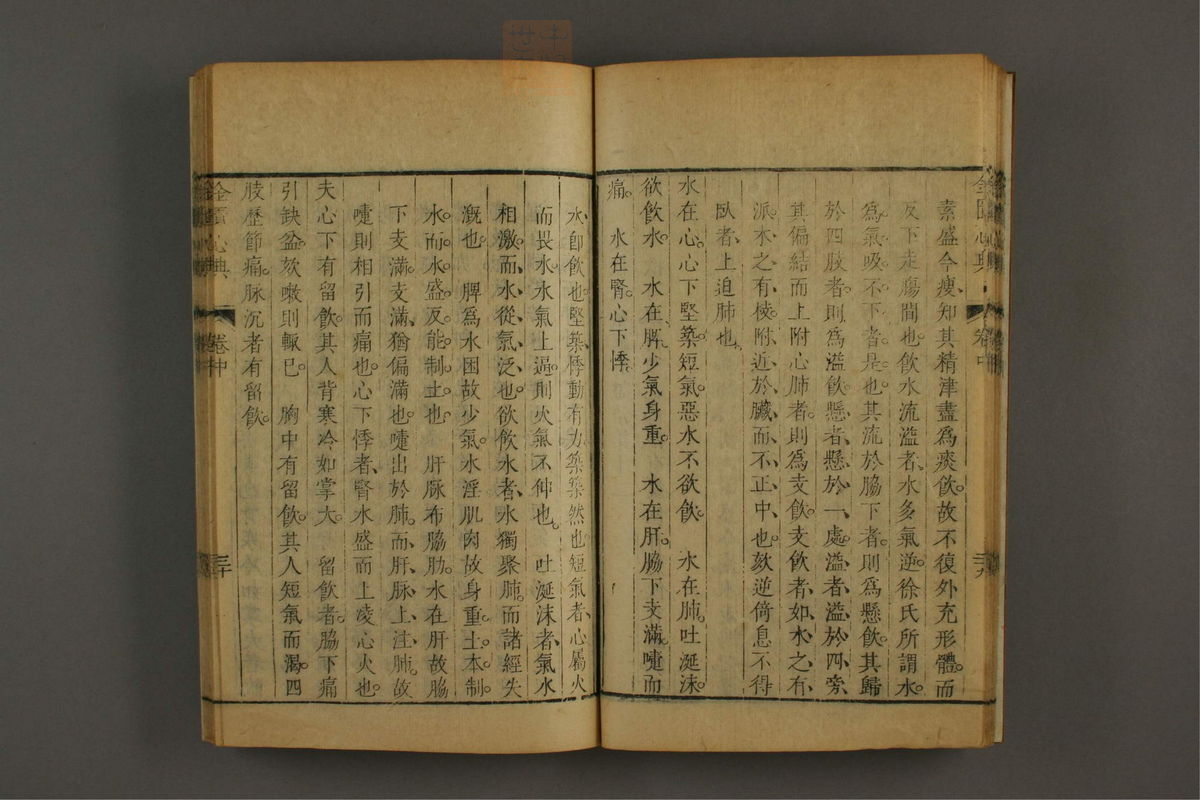 金匱心典
卷中
素盛今瘦、知其精津盡爲痰飲。故不復外充形體。而
反下走腸間也。飲水流溢者、水多氣逆。徐氏所謂水。
爲氣吸。不下者。是也。其流於脇下者。則爲懸飲。其歸
於四肢者。則爲溢飲。懸者、懸於一處。溢者、溢於四旁、
其偏結而上附心肺者。則爲支飲。支飲者、如水之有、
派、木之有枝。附近於臟、而不正中也。欬逆倚息不得
臥者、上迫肺也。
水在心。心下堅築。短氣。惡水不欲飲。 水在肺。吐涎沫。
欲飲水。 水在脾。少氣身重。 水在肝。脇下支滿。嚏而
痛。 水在腎。心下悸。
水卽飲也。堅築、悸動有力、築築然也。短氣者、心屬火
而畏水。水氣上逼。則火氣不伸也。 吐涎沫者、氣水
相激。而水從氣泛也。欲飲水者、水獨聚肺。而諸經失
溉也。 脾爲水困故少氣。水淫肌肉故身重。土本制。
水。而水盛反能制土也。 肝脈布脇肋。水在肝故脇
下支滿。支滿、猶偏滿也。嚏出於肺。而肝脈上注肺。故
嚏則相引而痛也。心下悸者、腎水盛而上凌心火也。
夫心下有留飲。其人背寒冷如掌大。 留飲者。脇下痛
引缺盆。欬嗽則輒已。 胸中有留飲。其人短氣而渴。四
肢歷節痛。脈沉者有留飲。
金匱心典
卷中
三十